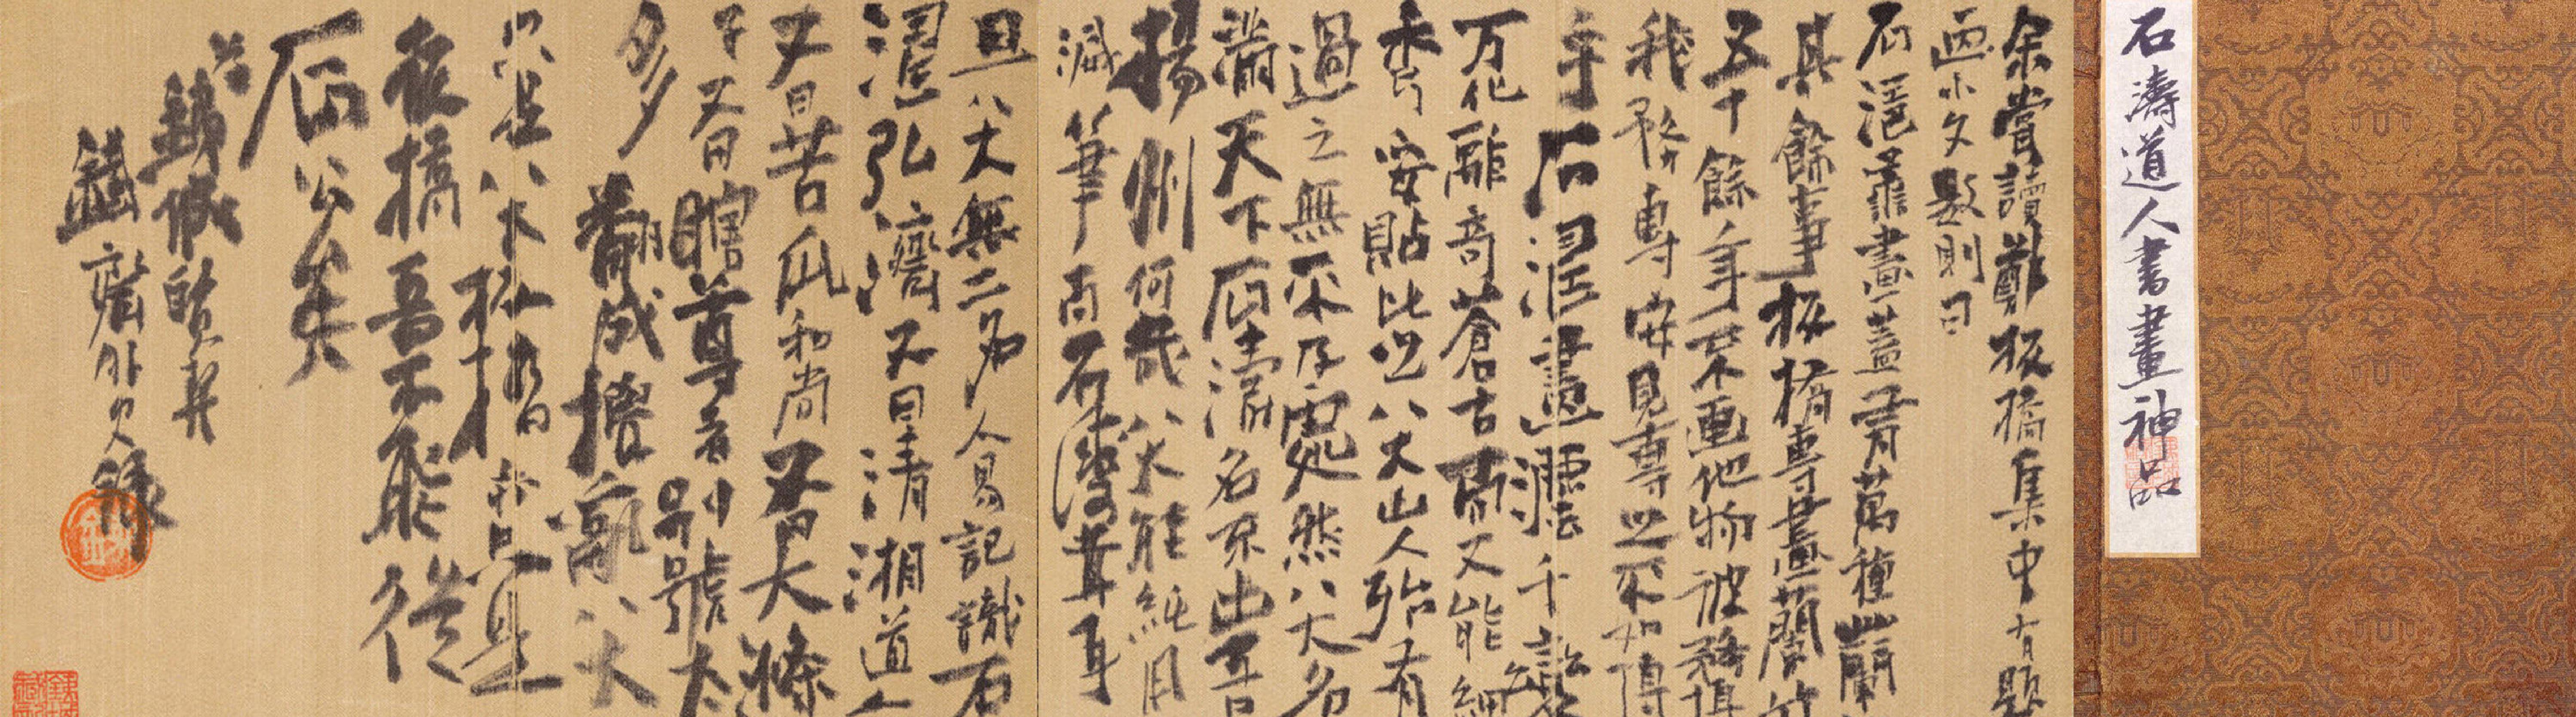 石濤道人書畫神品
余嘗讀鄭板橋集中有題
画小文數則曰
石濤善畫蓋有萬種蘭
其餘事板橋專畫蘭竹
五十餘年不画他物彼務博
我務專安見專之不如博
乎石濤畫法千變
万化離奇蒼古而又能細
秀妥貼比之八大山人殆有
過之無不及處然八大名
滿天下石濤名不出吾
揚州何哉八大能純用
減筆而石濤微茸耳
且八大無二名人易記識石
濤弘濟又曰清湘道人
又曰苦瓜和尚又曰大滌
子又曰瞎尊者別號太
多翻成攪亂八大
只是八大板橋亦只是
板橋吾不能從
石公矣
鐵齋外史